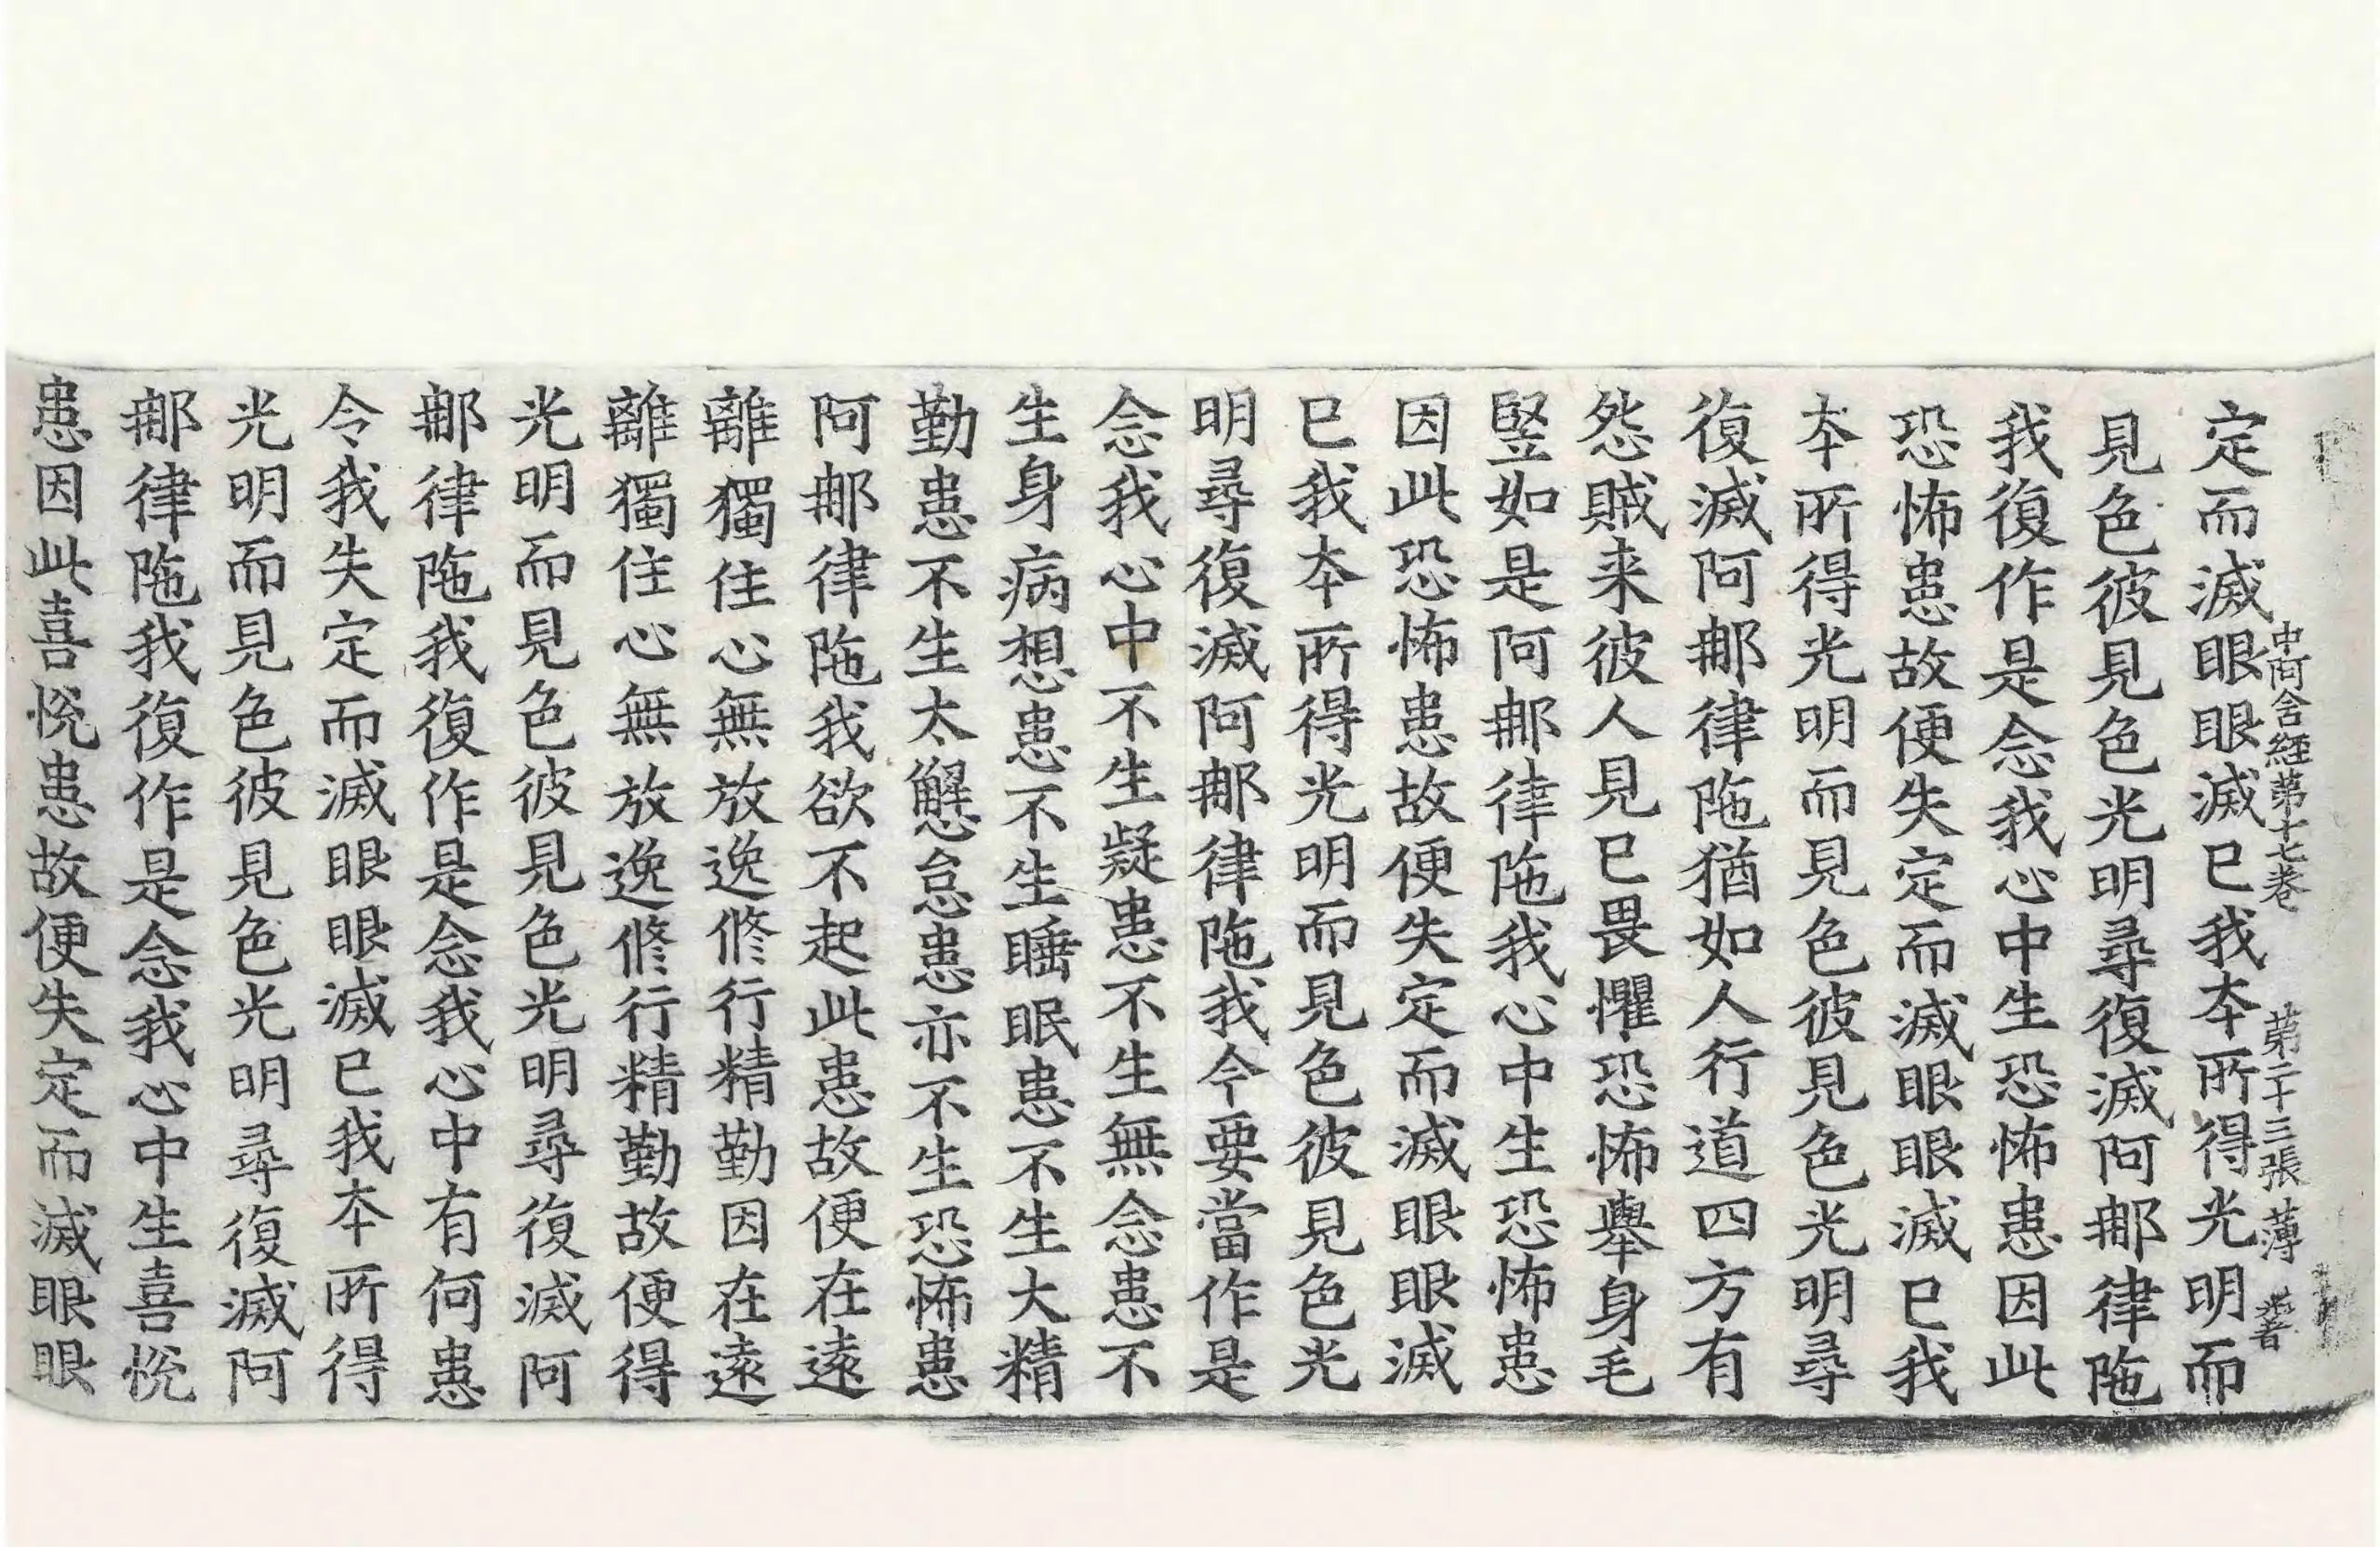 中阿含經第十七卷　第二十三張　薄
定而滅眼眼滅已我本所得光明而
見色彼見色光明尋復滅阿那律陁
我復作是念我心中生恐怖患因此
恐怖患故便失定而滅眼眼滅已我
本所得光明而見色彼見色光明尋
復滅阿那律陁猶如人行道四方有
怨賊来彼人見已畏懼恐怖舉身毛
竪如是阿那律陁我心中生恐怖患
因此恐怖患故便失定而滅眼眼滅
已我本所得光明而見色彼見色光
明尋復滅阿那律陁我今要當作是
念我心中不生疑患不生無念患不
生身病想患不生睡眠患不生大精
勤患不生太懈怠患亦不生恐怖患
阿那律陁我欲不起此患故便在遠
離獨住心無放逸修行精勤因在遠
離獨住心無放逸修行精勤故便得
光明而見色彼見色光明尋復滅阿
那律陁我復作是念我心中有何患
令我失定而滅眼眼滅已我本所得
光明而見色彼見色光明尋復滅阿
那律陁我復作是念我心中生喜悅
患因此喜悅患故便失定而滅眼眼